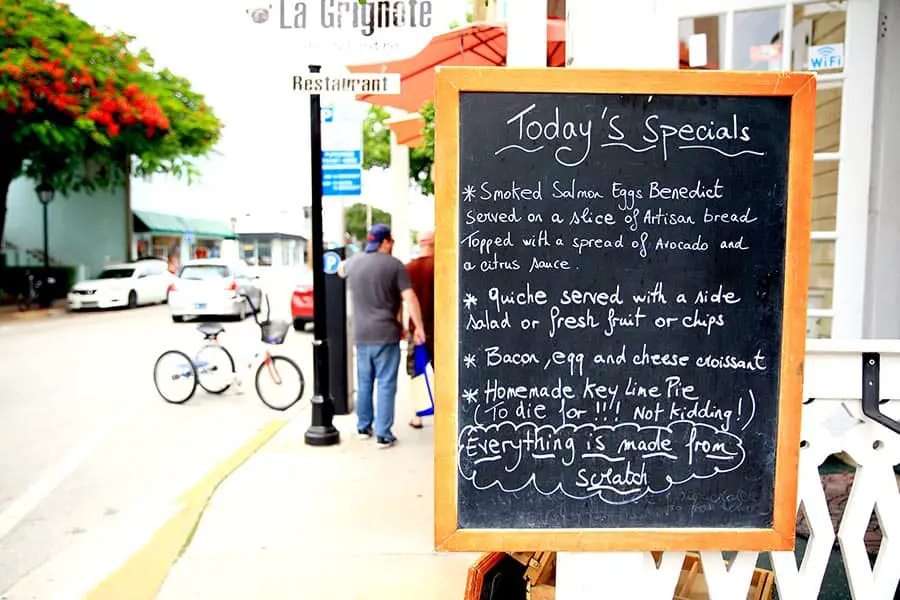 La Grignote
Restaurant
WiFi
P
Today's Specials
* Smoked Salmon Eggs Benedict
Served on a slice of Artisan bread
Topped with a spread of Avocado and
a citrus sauce.
* Quiche served with a side
salad or fresh fruit or chips
* Bacon, egg and cheese croissant
* Homemade Key Lime Pie
(To die for !!! Not kidding!)
Everything is made from
scratch